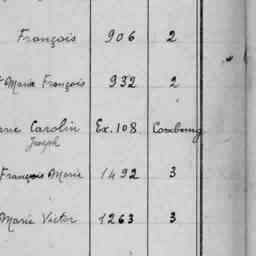 François 906 2
Marie François 932 2
Carolin Ex.108
Joseph
François Marie 1492 3
Marie Victor 1263 3